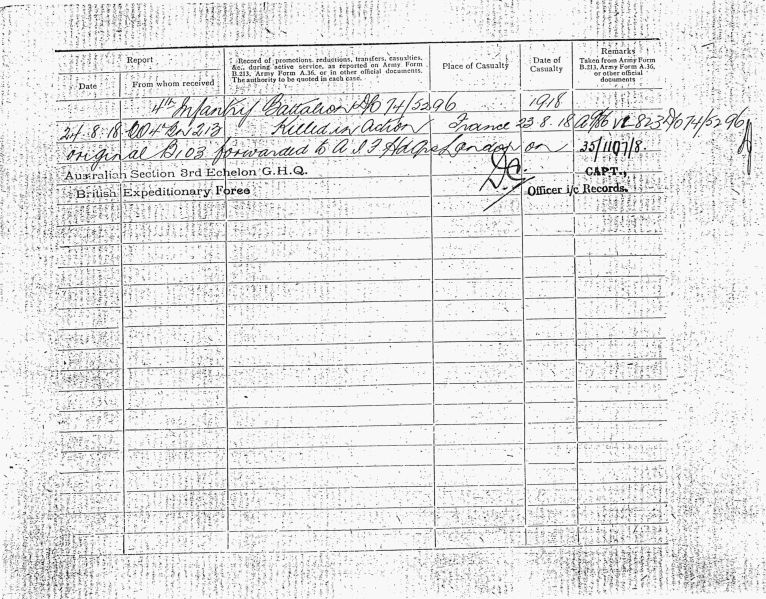 Report
Record of promotions, reductions, transfers, casualties,
&c., during active service, as reported on Army Form
B.213, Army Form A.36, or in other official documents.
The authority to be quoted in each case.
Place of Casualty
Date of
Casualty
Remarks
Taken from Army Form
B.213, Army Form A.36,
or other official
documents
Date
From whom received
4th Infantry Battalion 74/5296 1918
24.8.18 213 Killed in Action France 23.8.18 823 674/5296
original B103 forwarded to A I F London on 35/1107/8.
Australian Section 3rd Echelon G.H.Q.
British Expeditionary Force
CAPT.,
Officer i/c Records.